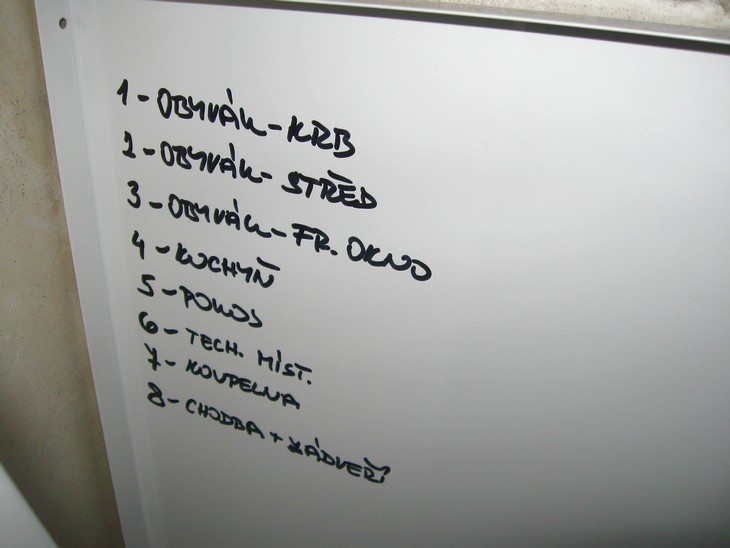 1 - OBYVÁK - KRB
2 - OBYVÁK - STŘED
3 - OBYVÁK - FR. OKNO
4 - KUCHYŇ
5 - POKOJ
6 - TECH. MÍST.
7 - KOUPELNA
8 - CHODBA + ZÁDVEŘÍ